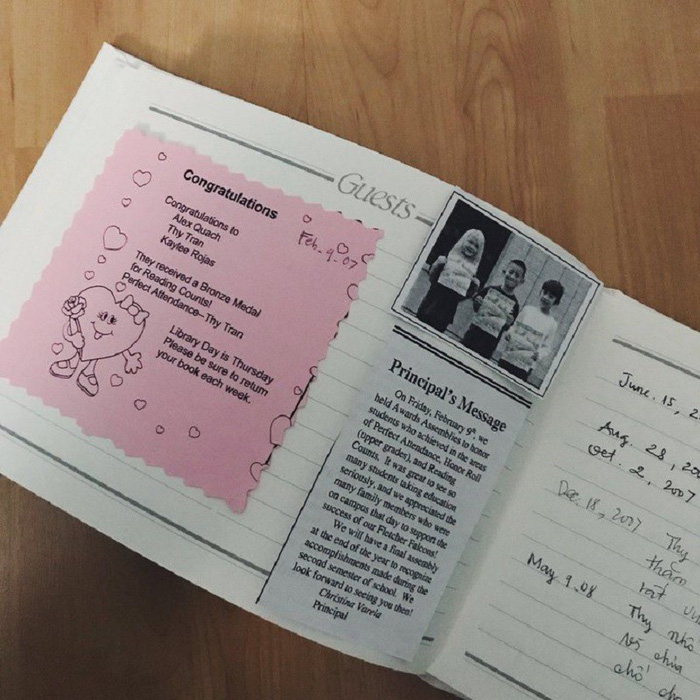 Guests
Congratulations
Congratulations to
Alex Quach
Thy Tran
Kaylee Rojas
Feb. 9. 07
They received a Bronze Medal
for Reading Counts!
Perfect Attendance–Thy Tran
Library Day is Thursday
Please be sure to return
your book each week.
Principal's Message
On Friday, February 9th, we
held Awards Assemblies to honor
students who achieved in the areas
of Perfect Attendance, Honor Roll
(upper grades), and Reading
Counts. It was great to see so
many students taking education
seriously, and we appreciated the
many family members who were
on campus that day to support the
success of our Fletcher Falcons!
We will have a final assembly
at the end of the year to recognize
accomplishments made during the
second semester of school. We
look forward to seeing you then!
Christina Varela
Principal
June. 15,
Aug. 28, 200
Oct. 2, 2007
Dec. 18, 2007 Thy
thăm
rất
May 9. 08
Thy nhổ